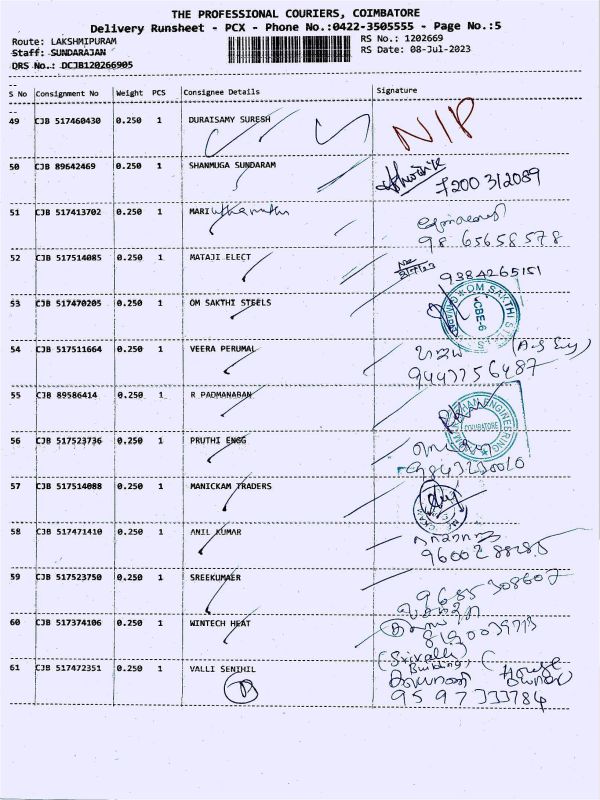 THE PROFESSIONAL COURIERS, COIMBATORE
Delivery Runsheet - PCX - Phone No.:0422-3505555 - Page No.:5
Route: LAKSHMIPURAM
RS No.: 1202669
Staff: SUNDARAJAN
RS Date: 08-Jul-2023
DRS No.: DCJB120266905
S No Consignment No Weight PCS Consignee Details Signature
49 CJB 517460430 0.250 1 DURAISAMY SURESH NIP
50 CJB 89642469 0.250 1 SHANMUGA SUNDARAM
7200312089
51 CJB 517413702 0.250 1 MARI
98 65658578
52 CJB 517514085 0.250 1 MATAJI ELECT
9384265151
53 CJB 517470205 0.250 1 OM SAKTHI STEELS
OM SAKTHI CBE-6
54 CJB 517511664 0.250 1 VEERA PERUMAL
9443756487
55 CJB 89586414 0.250 1 R PADMANABAN
ENGINEERING COIMBATORE
56 CJB 517523736 0.250 1 PRUTHI ENGG
9843230020
57 CJB 517514088 0.250 1 MANICKAM TRADERS
58 CJB 517471410 0.250 1 ANIL KUMAR
59 CJB 517523750 0.250 1 SREEKUMAER
9685308602
60 CJB 517374106 0.250 1 WINTECH HEAT
8190039713
61 CJB 517472351 0.250 1 VALLI SENTHIL
(Srivalli Building) (House owner
9597333784